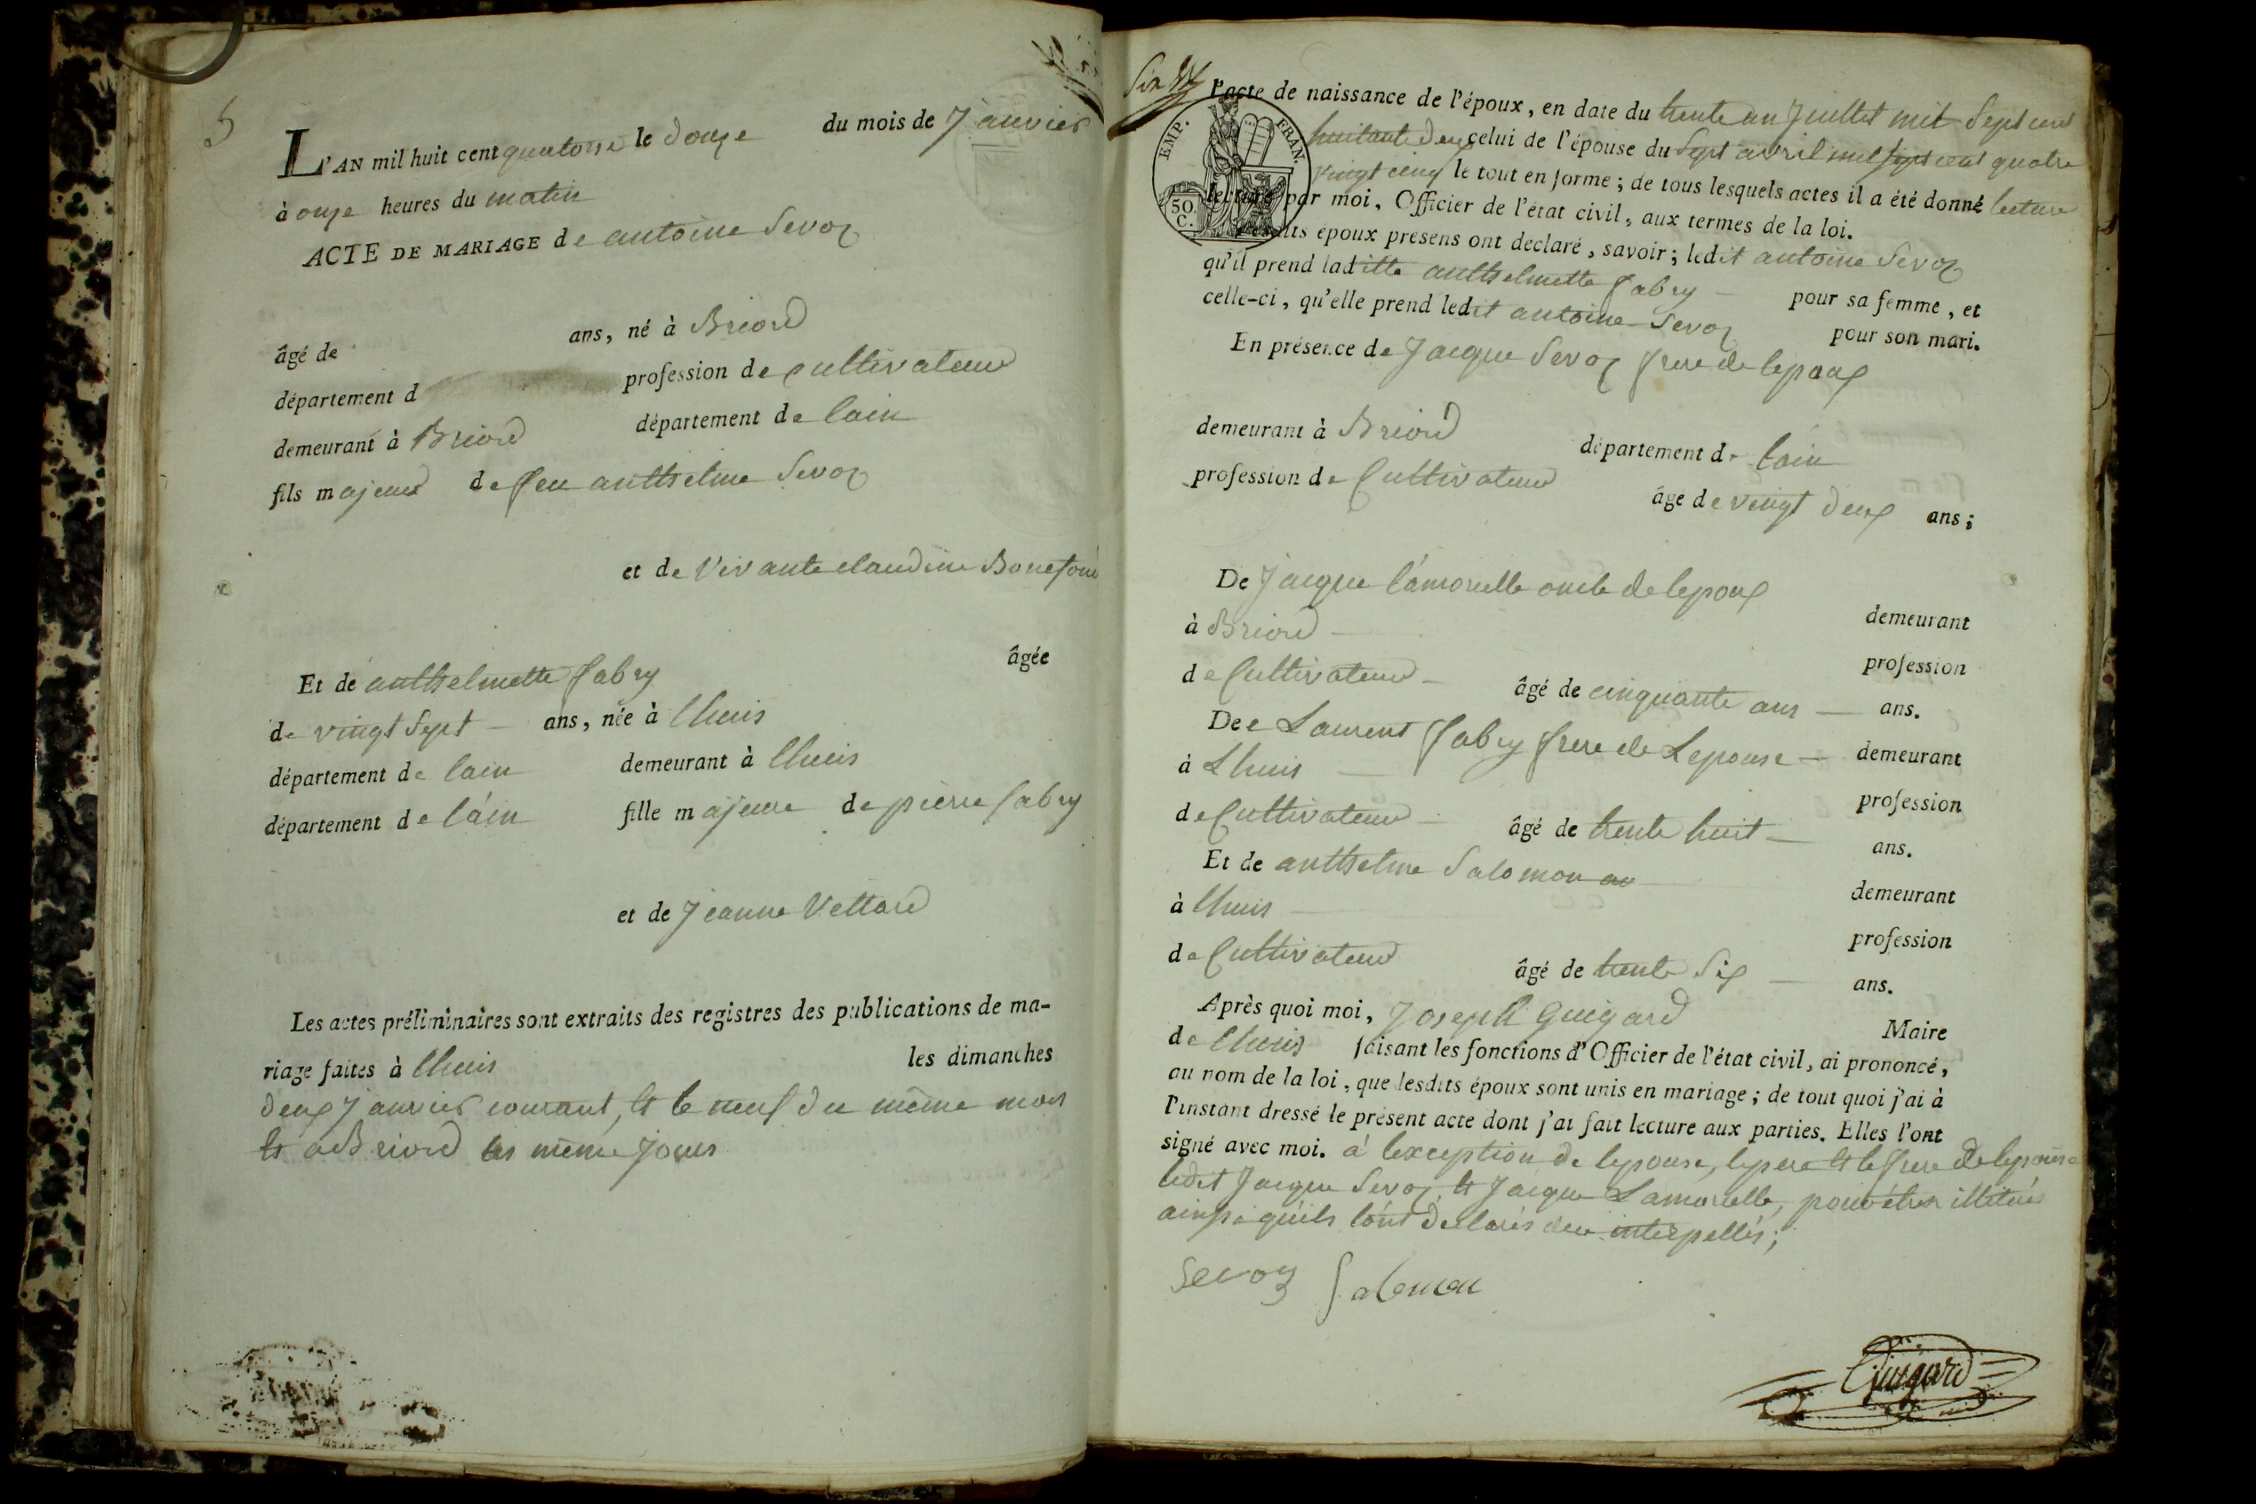 5
L'AN mil huit cent quatorze le douze du mois de Janvier
à onze heures du matin
ACTE DE MARIAGE de antoine Sevoz
âgé de ans, né à Briord
département d profession de cultivateur
demeurant à Briord département de lain
fils majeur de feu anthelme Sevoz
et de vivante claudine Bonefoui
Et de anthelmette fabry âgée
de vingt Sept ans, née à lhuis
département de lain demeurant à lhuis
département de l'ain fille majeure de pierre fabry
et de Jeanne Vettard
Les actes préliminaires sont extraits des registres des publications de ma-
riage faites à lhuis les dimanches
deux Janvier courant, et le neuf du même mois
et a Briord les même jours
Six
l'acte de naissance de l'époux, en date du trente un Juillet mil Sept cent
huitante deux celui de l'épouse du Sept avril mil sept cent quatre
vingt cinq le tout en forme ; de tous lesquels actes il a été donné lecture
lecture par moi, Officier de l'état civil, aux termes de la loi.
EMP. FRAN.
50. C.
Lesdits époux présens ont déclaré, savoir ; ledit antoine Sevoz
qu'il prend laditte anthelmette fabry pour sa femme, et
celle-ci, qu'elle prend ledit antoine Sevoz pour son mari.
En présence de Jacque Sevoz frere de lepoux
demeurant à Briord département de lain
profession de Cultivateur âgé de vingt deux ans ;
De Jacque lamorelle oncle de lepoux demeurant
à Briord profession
de Cultivateur âgé de cinquante ans ans.
De e Laurent fabry frere de Lepouse demeurant
à Lhuis profession
de Cultivateur âgé de trente huit ans.
Et de anthelme Salomon demeurant
à lhuis profession
de Cultivateur âgé de trente Six ans.
Après quoi moi, Joseph Guigard Maire
de lhuis faisant les fonctions d'Officier de l'état civil, ai prononcé,
au nom de la loi, que lesdits époux sont unis en mariage ; de tout quoi j'ai à
l'instant dressé le présent acte dont j'ai fait lecture aux parties. Elles l'ont
signé avec moi. a lexception de lepouse, le pere et le frere de lepouse
ledit Jacque Sevoz et Jacque Lamorelle, pour être illiteré
ainsi qu'ils l'ont declarés de ce interpellés ;
Sevoz Salomon
Guigard